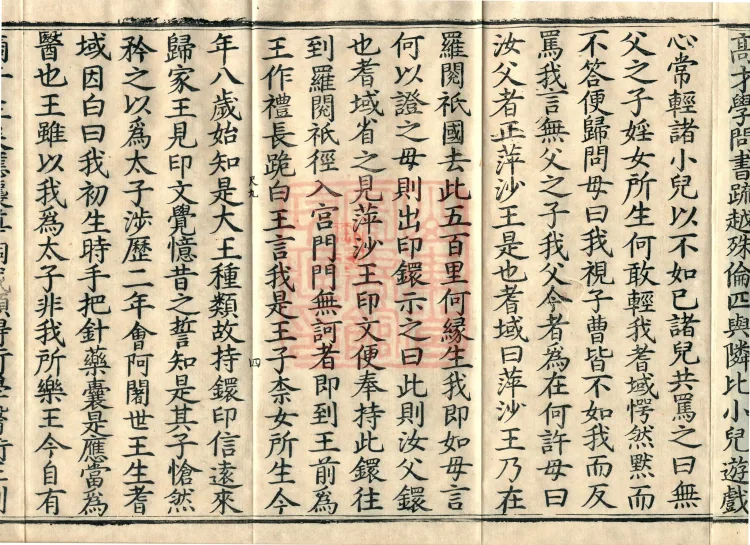 高才學問書䟽越殊倫匹與隣比小兒遊戲
心常輕諸小兒以不如己諸兒共罵之曰無
父之子婬女所生何敢輕我耆域愕然黙而
不答便歸問母曰我視子曹皆不如我而反
罵我言無父之子我父今者為在何許母曰
汝父者正萍沙王是也耆域曰萍沙王乃在
羅閱祇國去此五百里何緣生我即如母言
何以證之母則出印鐶示之曰此則汝父鐶
也耆域省之見萍沙王印文便奉持此鐶往
到羅閱祇徑入宮門門無訶者即到王前為
王作禮長跪白王言我是王子柰女所生今
四
年八歲始知是大王種類故持鐶印信遠來
歸家王見印文覺憶昔之誓知是其子愴然
矜之以為太子涉歷二年會阿闍世王生耆
域因白曰我初生時手把針藥囊是應當為
醫也王雖以我為太子非我所樂王今自有